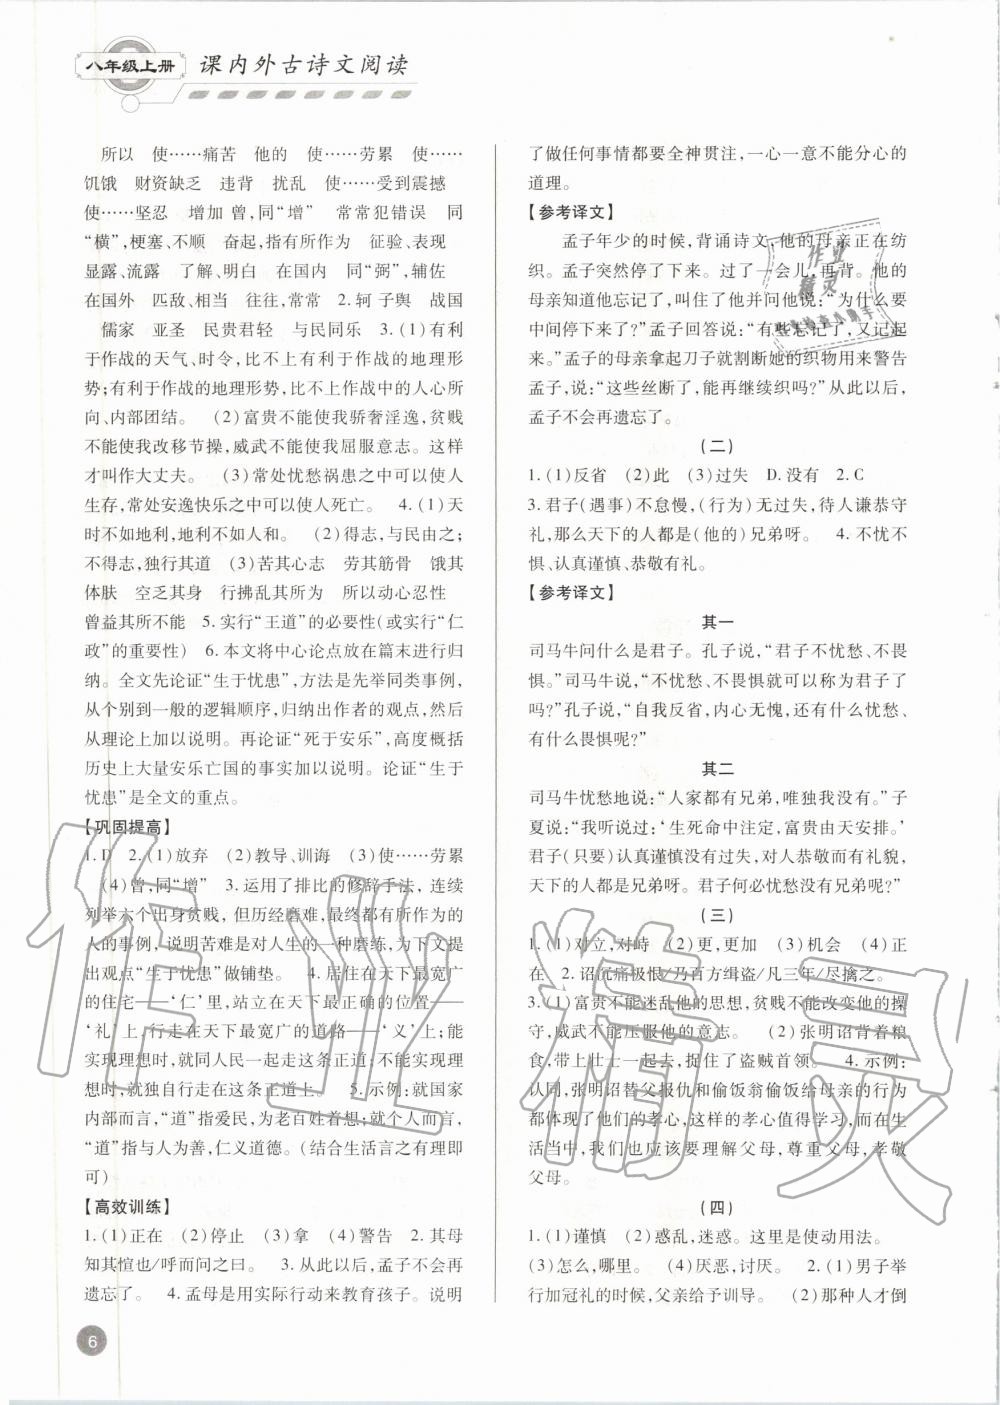 八年级上册
课内外古诗文阅读
所以　使……痛苦　他的　使……劳累　使……
饥饿　财资缺乏　违背　扰乱　使……受到震撼
使……坚忍　增加 曾,同“增”　常常犯错误　同
“横”,梗塞、不顺　奋起,指有所作为　征验、表现
显露、流露　了解、明白　在国内　同“弼”,辅佐
在国外　匹敌、相当　往往,常常　2.轲 子舆　战国
儒家　亚圣　民贵君轻　与民同乐　3.(1)有利
于作战的天气、时令,比不上有利于作战的地理形
势;有利于作战的地理形势,比不上作战中的人心所
向、内部团结。　(2)富贵不能使我骄奢淫逸,贫贱
不能使我改移节操,威武不能使我屈服意志。这样
才叫作大丈夫。　(3)常处忧愁祸患之中可以使人
生存,常处安逸快乐之中可以使人死亡。　4.(1)天
时不如地利,地利不如人和。　(2)得志,与民由之;
不得志,独行其道　(3)苦其心志　劳其筋骨　饿其
体肤　空乏其身　行拂乱其所为　所以动心忍性
曾益其所不能　5.实行“王道”的必要性(或实行“仁
政”的重要性)　6.本文将中心论点放在篇末进行归
纳。全文先论证“生于忧患”,方法是先举同类事例,
从个别到一般的逻辑顺序,归纳出作者的观点,然后
从理论上加以说明。再论证“死于安乐”,高度概括
历史上大量安乐亡国的事实加以说明。论证“生于
忧患”是全文的重点。
【巩固提高】
1.D　2.(1)放弃　(2)教导、训诲　(3)使……劳累
(4)曾,同“增”　3.运用了排比的修辞手法,连续
列举六个出身贫贱,但历经磨难,最终都有所作为的
人的事例,说明苦难是对人生的一种磨练,为下文提
出观点“生于忧患”做铺垫。　4.居住在天下最宽广
的住宅——‘仁’里,站立在天下最正确的位置——
‘礼’上,行走在天下最宽广的道路——‘义’上;能
实现理想时,就同人民一起走这条正道;不能实现理
想时,就独自行走在这条正道上。　5.示例:就国家
内部而言,“道”指爱民,为老百姓着想;就个人而言,
“道”指与人为善,仁义道德。(结合生活言之有理即
可)
【高效训练】
1.(1)正在　(2)停止　(3)拿　(4)警告　2.其母
知其愃也/呼而问之曰。　3.从此以后,孟子不会再
遗忘了。　4.孟母是用实际行动来教育孩子。说明
6
了做任何事情都要全神贯注,一心一意不能分心的
道理。
【参考译文】
孟子年少的时候,背诵诗文,他的母亲正在纺
织。孟子突然停了下来。过了一会儿,再背。他的
母亲知道他忘记了,叫住了他,问道:“为什么
中间停下来了?”孟子回答说:“有些忘记了,又记起
来。”孟子的母亲拿起刀子就割断她的织物用来警告
孟子,说:“这些丝断了,能再继续织吗?”从此以后,
孟子不会再遗忘了。
(二)
1.(1)反省　(2)此　(3)过失　D.没有　2.C
3.君子(遇事)不怠慢,(行为)无过失,待人谦恭守
礼,那么天下的人都是(他的)兄弟呀。　4.不忧不
惧、认真谨慎、恭敬有礼。
【参考译文】
其一
司马牛问什么是君子。孔子说,“君子不忧愁、不畏
惧。”司马牛说,“不忧愁、不畏惧就可以成为君子了
吗?”孔子说,“自我反省,内心无愧,还有什么忧愁、
有什么畏惧呢?”
其二
司马牛忧愁地说:“人家都有兄弟,唯独我没有。”子
夏说:“我听说过:‘生死命中注定,富贵由天安排。’
君子(只要)认真谨慎没有过失,对人恭敬而有礼貌,
天下的人都是兄弟呀。君子何必忧愁没有兄弟呢?”
(三)
1.(1)对立,对峙　(2)更,更加　(3)机会　(4)正
在　2.诏沉痛极恨/乃百方缉盗/凡三年/尽擒之。
3.(1)富贵不能迷乱他的思想,贫贱不能改变他的操
守,威武不能压服他的意志。　(2)张明诏背着粮
食,带上壮士一起去,捉住了盗贼首领。　4.示例:
认同,张明诏替父报仇和偷饭翁偷饭给母亲的行为
都体现了他们的孝心,这样的孝心值得学习,而在生
活当中,我们也应该要理解父母,尊重父母,孝敬
父母。
(四)
1.(1)谨慎　(2)惑乱,迷惑。这里是使动用法。
(3)怎么,哪里。　(4)厌恶,讨厌。　2.(1)男子举
行加冠礼的时候,父亲给予训导。　(2)那种人才倒
作业精灵
作业精灵